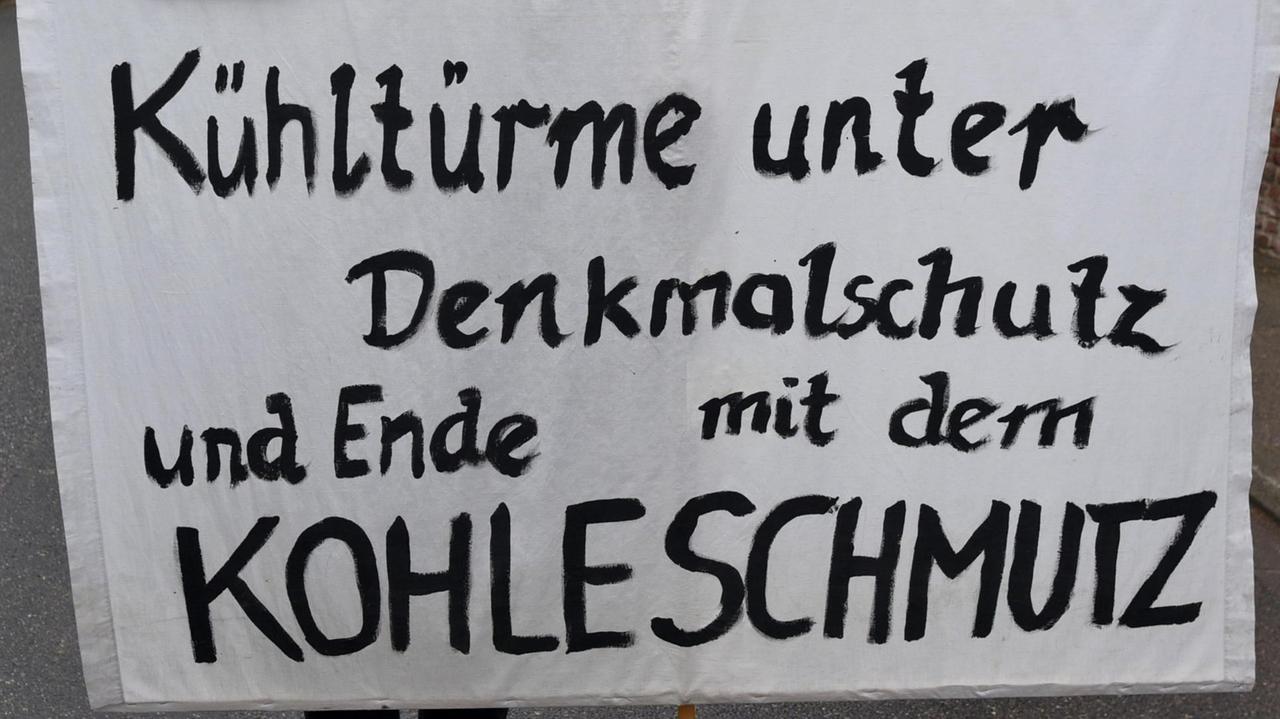 Kühltürme unter
Denkmalschutz
und Ende mit dem
KOHLESCHMUTZ